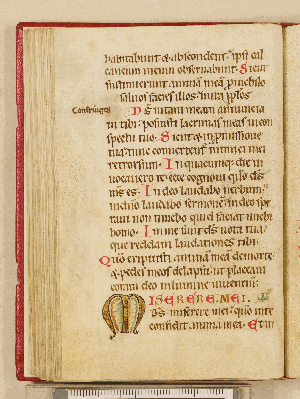 habitabunt & abscondent ipsi cal
caneum meum observabunt. Sicut
sustinuerunt animã meã pro nihilo
salvos facies illos: in ira pplos
Confringes
Ds vitam meam annuncia
vi tibi: posuisti lacrimas meas in con
spectu tuo. Sicut & in promissione
tua: tunc convertent inimici mei
retrorsum. In quacumq; die in
vocavero te: ecce cognovi qm ds
ms es. In deo laudabo verbum:
in dño laudabo sermonẽ: in deo spe
ravi non timebo quid faciat michi
homo. In me sunt ds vota tua:
que reddam laudationes tibi.
Quõ eripuisti animã meã de morte:
& pedes meos de lapsu: ut placeam
coram deo in lumine viventiũ.
MISERERE MEI.
Ds miserere mei: qm in te
confidit anima mea. Et in